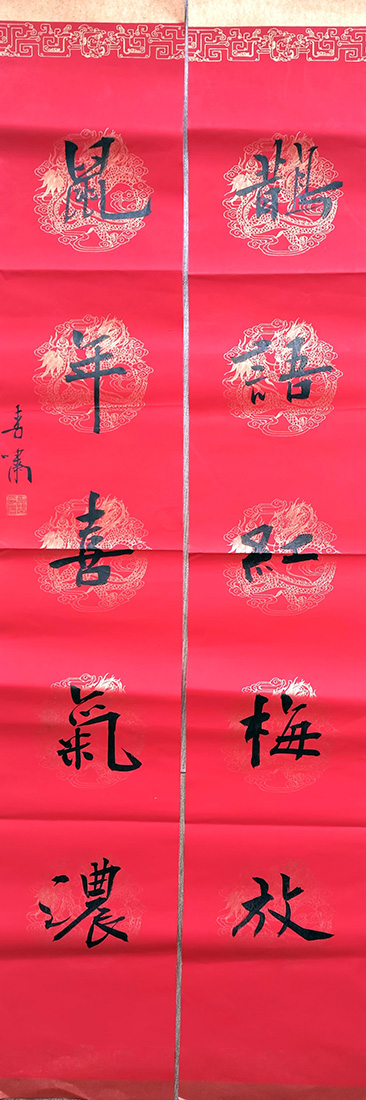 鵲語紅梅放
鼠年喜氣濃